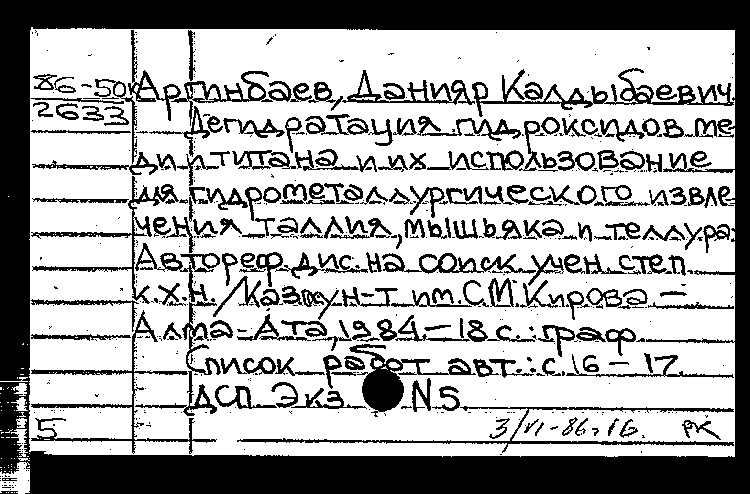 86-50к Аргинбаев, Данияр Калдыбаевич.
2633 Дегидратация гидроксидов ме
ди и титана и их использование
для гидрометаллургического извле
чения таллия, мышьяка и теллура:
Автореф. дис. на соиск. учен. степ.
к.х.н. / Каз. ун-т им. С.М. Кирова. —
Алма-Ата, 1984. — 18 с.: граф.
Список работ авт.: с. 16 – 17.
ДСП. Экз. N 5.
5 3/VI-86г. РК